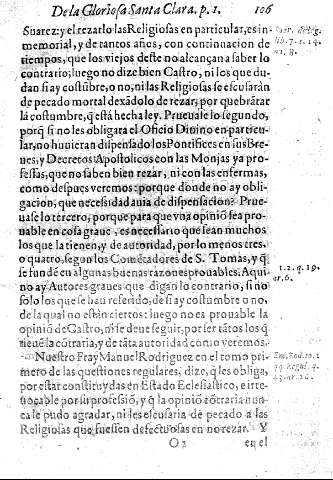 De la Gloriosa Santa Clara. p. 1. 106
Suarez: y el rezarlo las Religiosas en particular, es in-
memorial, y de tantos años, con continuacion de
tiempos, que los viejos deste no alcançan a saber lo
contrario; luego no dize bien Castro, ni los que du-
dan si ay costũbre, o no, ni las Religiosas se escusarán
de pecado mortal dexãdolo de rezar, por quebrãtar
la costumbre, q̃ està hecha ley. Prueuase lo segundo,
porq̃ si no les obligara el Oficio Diuino en particu-
lar, no huuieran dispensado los Pontifices en sus Bre-
ues, y Decretos Apostolicos con las Monjas ya pro-
fessas, que no saben bien rezar, ni con las enfermas,
como despues veremos: porque donde no ay obli-
gacion, que necesidad auia de dispensacion? Prue-
uase lo tercero, porque para que vna opinió sea pro-
uable en cosa graue, es necessario que sean muchos
los que la tienen, y de autoridad, por lo menos tres,
o quatro, segun los Comẽtadores de S. Tomas, y q̃
se fundẽ en algunas buenas razones prouables. Aqui
no ay Autores graues que digan lo contrario, si no
solo los que se han referido, de si ay costumbre o no,
de la qual no estàn ciertos: luego no es prouable la
opinió de Castro, ni se deue seguir, por ser tãtos los q̃
tiené la cõtraria, y de tãta autoridad como veremos.
Nuestro Fray Manuel Rodriguez en el tomo pri-
mero de las questiones regulares, dize, q̃ les obliga,
por estar constituydas en Estado Eclesiastico, e irre-
uogable por su professió, y q̃ la opinió cõtraria nun-
ca le pudo agradar, ni les escusaria de pecado a las
Religiosas que fuessen defectuosas en no rezar. Y
O 2 en el
lib. 7. c. 14.
n. 8.
1. 2. q. 19.
ar. 6.
Em. Rod. to. 1
qq. Regul. q.